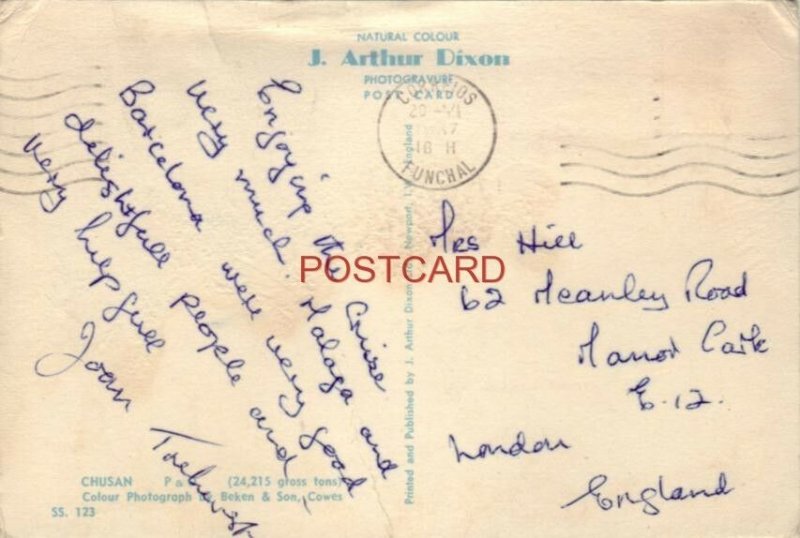 NATURAL COLOUR
J. Arthur Dixon
PHOTOGRAVURE
POST CARD
CORREIOS
20 - VI
18 H
FUNCHAL
Enjoying the Cruise
very much. Malaga and
Barcelona were very good
delightfull people and
very helpfull
Joan
Printed and Published by J. Arthur Dixon Newport, England
Mrs Hill
62 Meanley Road
Manor Park
E.12.
London
England
POSTCARD
CHUSAN P & (24,215 gross tons)
Colour Photograph Beken & Son, Cowes
SS. 123